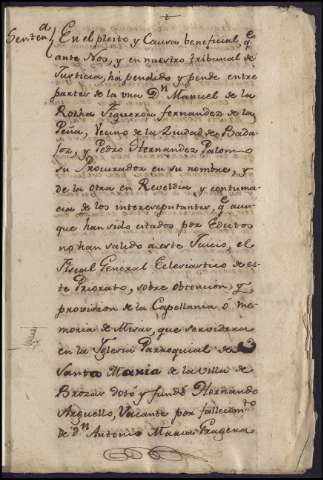 Senten.a En el pleito y Causa beneficial, q.e
ante Nos, y en nuestro tribunal de
Justicia, ha pendido y pende entre
partes de la una D.n Manuel de la
Rocha Figueroa fernandez de la
Peña, Vecino de la Ziudad de Bada-
joz, y Pedro Hernandez Palomo
su Procurador en su nombre, y
de la otra en Reveldia, y contuma-
cia de los interesputantes, q.e aun-
que han sido citados por Edictos
no han salido à este Juicio, el
Fiscal General Eclesiastico de es-
te Priorato, sobre obtencion, y
provision de la Capellania ó me-
moria de Misas, que servidera
en la Iglesia Parroquial de
Santa Maria de la Villa de
Brozas dotó y fundó Hernando
Arguello, Vacante por fallecim.to
de D.n Antonio Marcos Fragena